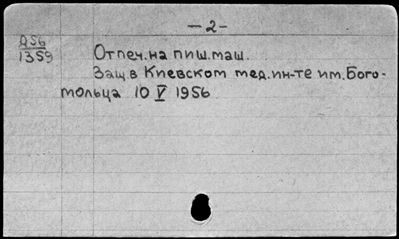 — 2 —
Д56
1359
Отпеч. на пиш. маш.
Защ. в Киевском мед. ин-те им. Бого-
мольца 10 V 1956